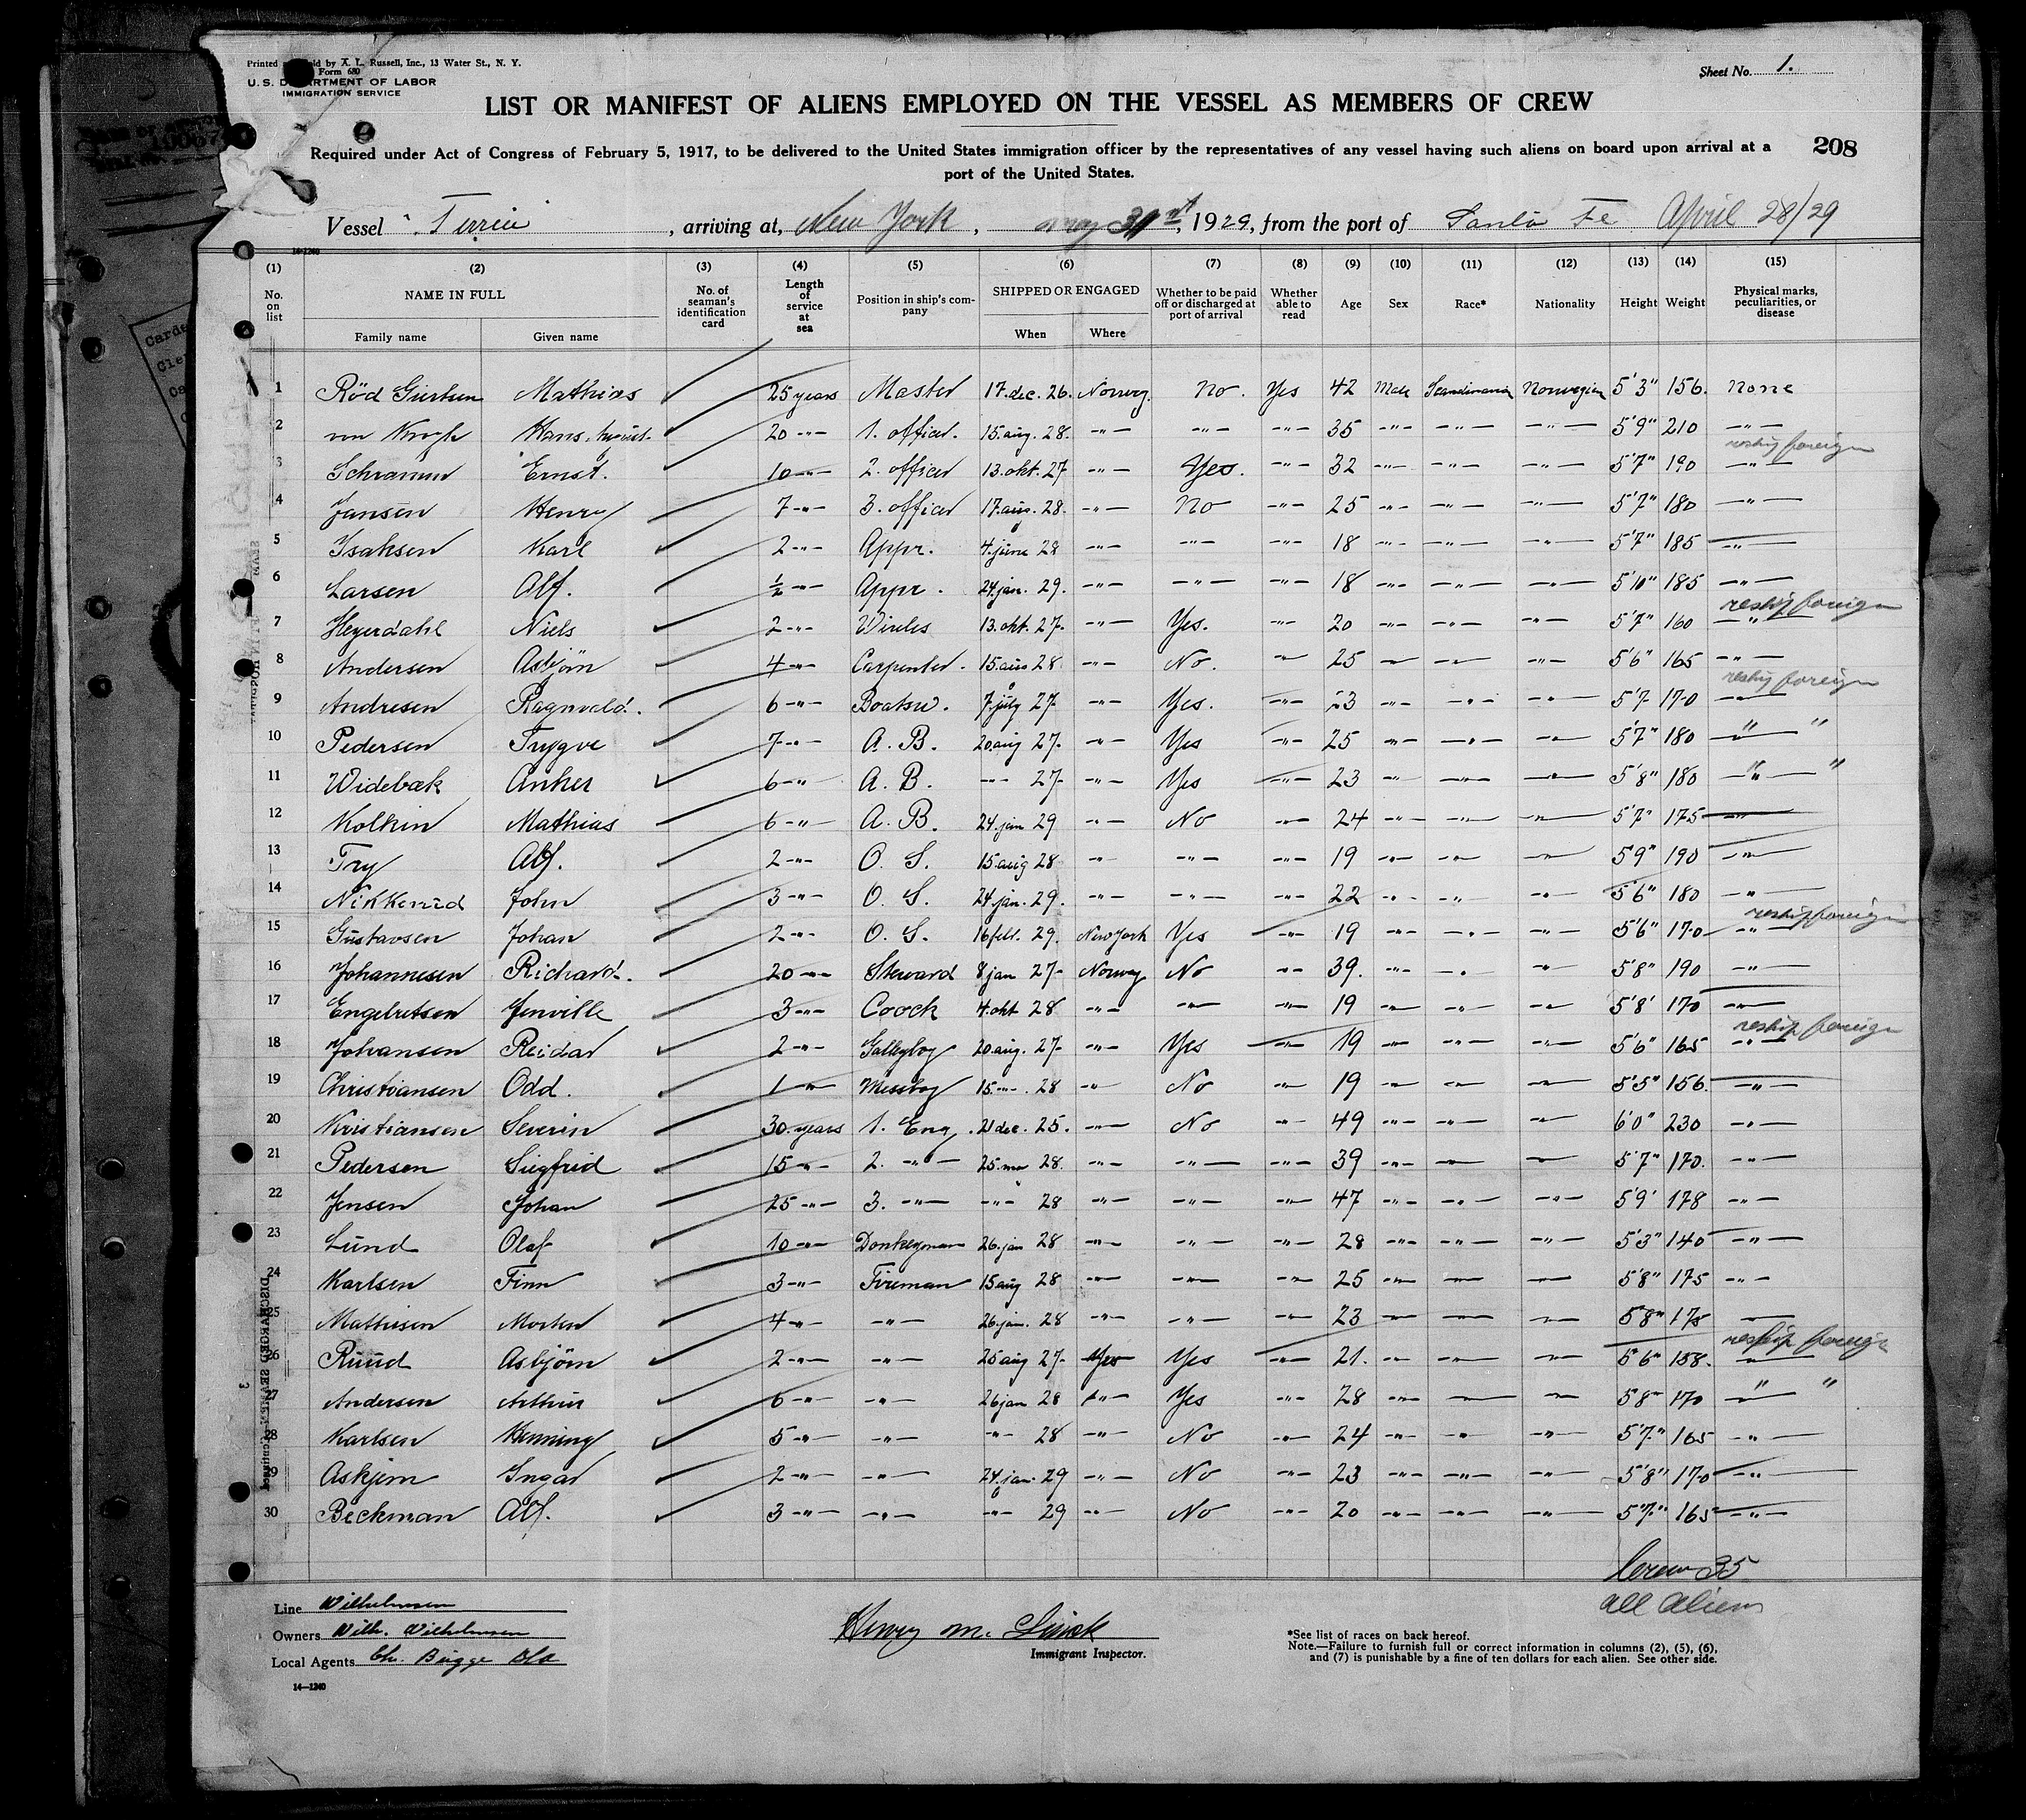 Printed by X. L. Russell, Inc., 13 Water St., N. Y.
Form 680
U. S. DEPARTMENT OF LABOR
IMMIGRATION SERVICE
Sheet No. 1.
LIST OR MANIFEST OF ALIENS EMPLOYED ON THE VESSEL AS MEMBERS OF CREW
Required under Act of Congress of February 5, 1917, to be delivered to the United States immigration officer by the representatives of any vessel having such aliens on board upon arrival at a
port of the United States.
208
Vessel , arriving at, New York, 1929, from the port of Santa Fe April 28/29
14-1240
(1) (2) (3) (4) (5) (6) (7) (8) (9) (10) (11) (12) (13) (14) (15)
No. on list NAME IN FULL No. of seaman's identification card Length of service at sea Position in ship's company SHIPPED OR ENGAGED Whether to be paid off or discharged at port of arrival Whether able to read Age Sex Race* Nationality Height Weight Physical marks, peculiarities, or disease
Family name Given name When Where
1 Röd Mathias 25 years Master 17. dec. 26. Norway. No. Yes 42 Male Scandinavian Norwegian 5'3" 156. None
2 Hans August. 20 -"- 1. officer. 15. aug. 28. -"- -"- -"- 35 -"- -"- -"- 5'9" 210 -"-
3 Schramm Ernst. 10 -"- 2. officer 13. okt. 27 -"- Yes. -"- 32 -"- -"- -"- 5'7" 190 -"- reship foreign
4 Jansen Henry 7 -"- 3. officer 17. aug. 28. -"- No -"- 25 -"- -"- -"- 5'7" 180 -"-
5 Isaksen Karl 2 -"- Appr. 4. june 28 -"- -"- -"- 18 -"- -"- -"- 5'7" 185 -"-
6 Larsen Alf. ½ -"- Appr. 24. jan. 29. -"- -"- -"- 18 -"- -"- -"- 5'10" 185 -"-
7 Heyerdahl Niels 2 -"- Wireles 13. okt. 27. -"- Yes. -"- 20 -"- -"- -"- 5'7" 160 -"- reship foreign
8 Andersen Asbjörn 4 -"- Carpenter. 15. aug 28 -"- No. -"- 25 -"- -"- -"- 5'6" 165 -"-
9 Andresen Ragnvald. 6 -"- Boatsw. 7. july 27 -"- Yes. -"- 23 -"- -"- -"- 5'7 170 -"- reship foreign
10 Pedersen Trygve 7 -"- A. B. 20. aug 27. -"- Yes -"- 25 -"- -"- -"- 5'7" 180 -"- " "
11 Widebæk Anker 6 -"- A. B. -"- 27 -"- Yes -"- 23 -"- -"- -"- 5'8" 180 -"- " "
12 Kolkin Mathias 6 -"- A. B. 24. jan 29 -"- No -"- 24 -"- -"- -"- 5'7" 175 -"-
13 Try Alf. 2 -"- O. S. 15. aug 28 -"- -"- -"- 19 -"- -"- -"- 5'9" 190 -"-
14 Nikkerud John 3 -"- O. S. 24. jan. 29. -"- -"- -"- 22 -"- -"- -"- 5'6" 180 -"-
15 Gustavsen Johan 2 -"- O. S. 16 feb. 29. New York Yes -"- 19 -"- -"- -"- 5'6" 170 -"- reship foreign
16 Johannesen Richard. 20 -"- Steward 8 jan 27 Norway No -"- 39. -"- -"- -"- 5'8" 190 -"-
17 Engebretsen Jenville 3 -"- Coock 4. okt 28 -"- -"- -"- 19 -"- -"- -"- 5'8' 170 -"-
18 Johansen Reidar 2 -"- Galleyboy 20. aug. 27. -"- Yes -"- 19 -"- -"- -"- 5'6" 165 -"- reship foreign
19 Christiansen Odd. 1 -"- Messboy 15. -"- 28 -"- No -"- 19 -"- -"- -"- 5'5" 156. -"-
20 Kristiansen Severin 30. years 1. Eng. 21 dec. 25. -"- No -"- 49 -"- -"- -"- 6'0" 230 -"-
21 Pedersen Siegfried 15 -"- 2. -"- 25. 28. -"- -"- -"- 39 -"- -"- -"- 5'7" 170. -"-
22 Jensen Johan 25 -"- 3. -"- -"- 28 -"- -"- -"- 47 -"- -"- -"- 5'9' 178 -"-
23 Lund Olaf 10 -"- Donkeyman 26. jan 28 -"- -"- -"- 28 -"- -"- -"- 5'3" 140 -"-
24 Karlsen Finn 3 -"- Fireman 15 aug 28 -"- -"- -"- 25 -"- -"- -"- 5'8" 175 -"-
25 Mathisen Morten 4 -"- -"- 26. jan. 28 -"- -"- -"- 23 -"- -"- -"- 5'8" 175 -"-
26 Ruud Asbjörn 2 -"- -"- 25 aug 27. Yes Yes -"- 21. -"- -"- -"- 5'6" 158. -"- reship foreign
27 Andersen Arthur 6 -"- -"- 26 jan 28 -"- Yes -"- 28 -"- -"- -"- 5'8" 170 -"- " "
28 Karlsen Henning 5 -"- -"- -"- 28 -"- No -"- 24 -"- -"- -"- 5'7" 165 -"-
29 Askjem Ingar 2 -"- -"- 24. jan. 29 -"- No -"- 23 -"- -"- -"- 5'8" 170 -"-
30 Beckman Alf. 3 -"- -"- -"- 29 -"- No -"- 20 -"- -"- -"- 5'7" 165 -"-
Crew 35
all aliens
Line Wilhelmsen
Owners Wilh. Wilhelmsen
Local Agents
Henry M.
Immigrant Inspector.
*See list of races on back hereof.
Note.—Failure to furnish full or correct information in columns (2), (5), (6),
and (7) is punishable by a fine of ten dollars for each alien. See other side.
14—1240